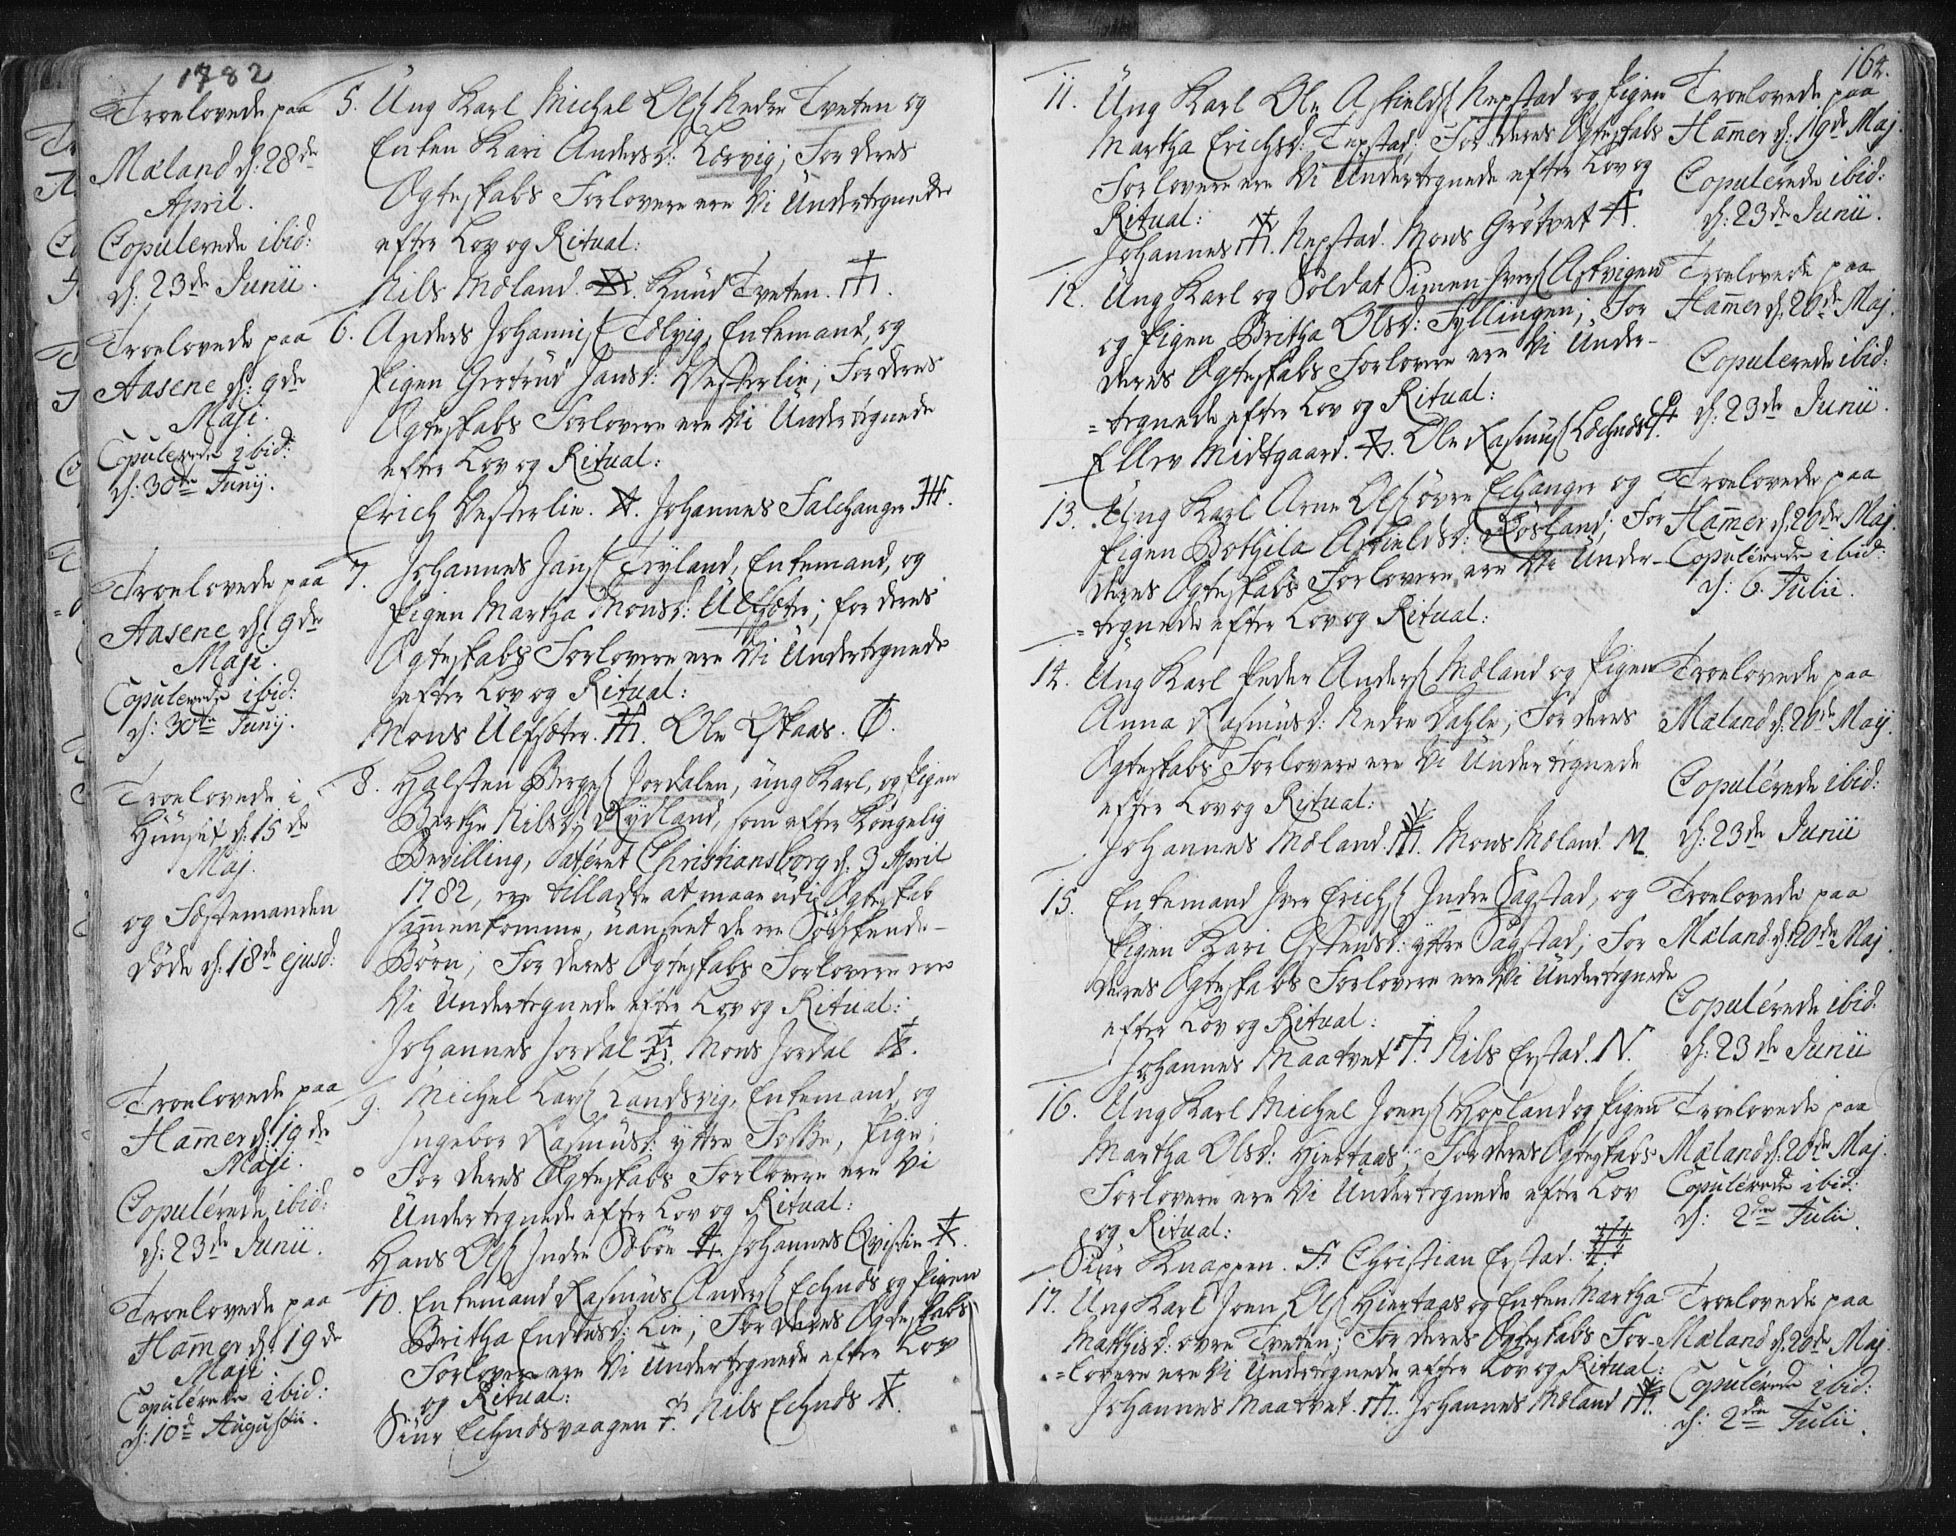 1782
Troelovede paa
Mæland d: 28de
April.
Copulerede ibid:
d: 23de Junii.
5. Ung Karl Michel Ols Nedre Tveten og
Enken Kari Andersd: Lervig; For deres
Ægteskabs Forlovere ere Vi Undertegnede
efter Lov og Ritual:
Nils Mæland. Knud Tveten.
Troelovede paa
Aasene d: 9de
Maji.
Copulerede ibid:
d: 30te Junij.
6. Anders Johannis Tolvig, Enkemand, og
Pigen Gertrud Jansd: Vesterlie; For deres
Ægteskabs Forlovere ere Vi Undertegnede
efter Lov og Ritual:
Erich Vesterlie. Johannes Falchanger
Troelovede paa
Aasene d: 9de
Maji.
Copulerede ibid:
d: 30te Junij.
7. Johannes Jans Tryland, Enkemand, og
Pigen Martha Monsd: Ulfsæter; for deres
Ægteskabs Forlovere ere Vi Undertegnede
efter Lov og Ritual:
Mons Ulfsæter. Ole
Troelovede i
d: 15de
Maj.
og Fæstemanden
døde d: 18de ejusd:
8. Halsten Børges Jordalen, ung Karl, og Pigen
Berthe Nilsd: Rydland, som efter Kongelig
Bevilling, dateret Christiansborg d: 3 April
1782, ere tilladte at maae udi Ægteskab
sammenkomme, uanseet de ere Sødskende-
Børn; For deres Ægteskabs Forlovere ere
Vi Undertegnede efter Lov og Ritual:
Johannes Jordal Mons Jordal
Troelovede paa
Hammer d: 19de
Maji.
Copulerede ibid:
d: 23de Junii.
9. Michel Lars Landsvig, Enkemand, og
Ingebor Rasmusd: yttre Fosse, Pige;
For deres Ægteskabs Forlovere ere Vi
Undertegnede efter Lov og Ritual:
Hans Ols Indre Søbøe Johannes Qvistie
Troelovede paa
Hammer d: 19de
Maji
Copulerede ibid:
d: 10de Augustii.
10. Enkemand Rasmus Anders Echnes og Pigen
Britha Endresd: Lie; For deres Ægteskabs
Forlovere ere Vi Undertegnede efter Lov
og Ritual:
Siur Echnæsvaagen Nils Echnæs
164.
11. Ung Karl Ole Askields Nepstad og Pigen
Martha Erichsd: Tepstad; For deres Ægteskabs
Forlovere ere Vi Undertegnede efter Lov og
Ritual:
Johannes Nepstad. Mons Grøtvet
Troelovede paa
Hammer d: 19de Maj.
Copulerede ibid:
d: 23de Junii.
12. Ung Karl og Soldat Simen Ivers Askvigen
og Pigen Britha Olsd: Fyllingen; For
deres Ægteskabs Forlovere ere Vi Under-
=tegnede efter Lov og Ritual:
Ellev Midtgaard. Ole Rasmus
Troelovede paa
Hammer d: 20de Maj.
Copulerede ibid:
d: 23de Junii.
13. Ung Karl Arne Ols øvre Echanger og
Pigen Bothila Askieldsd: Røsland; For
deres Ægteskabs Forlovere ere Vi Under-
=tegnede efter Lov og Ritual:
Troelovede paa
Hammer d: 20de Maj.
Copulerede ibid:
d: 6. Julii.
14. Ung Karl Peder Anders Mæland og Pigen
Anna Rasmusd: Nedre Dahle; For deres
Ægteskabs Forlovere ere Vi Undertegnede
efter Lov og Ritual:
Johannes Mæland. Mons Mæland. M.
Troelovede paa
Mæland d: 20de Maij.
Copulerede ibid:
d: 23de Junii
15. Enkemand Iver Erichs Indre Sagstad, og
Pigen Kari Østensd: yttre Sagstad; For
deres Ægteskabs Forlovere ere Vi Undertegnede
efter Lov og Ritual:
Johannes Maatvet Nils Erstad. N.
Troelovede paa
Mæland d: 20de Maj.
Copulerede ibid:
d: 23de Junii
16. Ung Karl Michel Joens Hopland og Pigen
Martha Olsd: Hiertaas; For deres Ægteskabs
Forlovere ere Vi Undertegnede efter Lov
og Ritual:
Siur Knappen. Christian Erstad.
Troelovede paa
Mæland d: 20de Maj.
Copulerede ibid:
d: 2den Julii.
17. Ung Karl Joen Ols Hiertaas og Enken Martha
Mathisd: øvre Tveten; For deres Ægteskabs For-
=lovere ere Vi Undertegnede efter Lov og Ritual:
Johannes Maatvet. Johannes Mæland
Troelovede paa
Mæland d: 20de Maj.
Copulerede ibid:
d: 2den Julii.